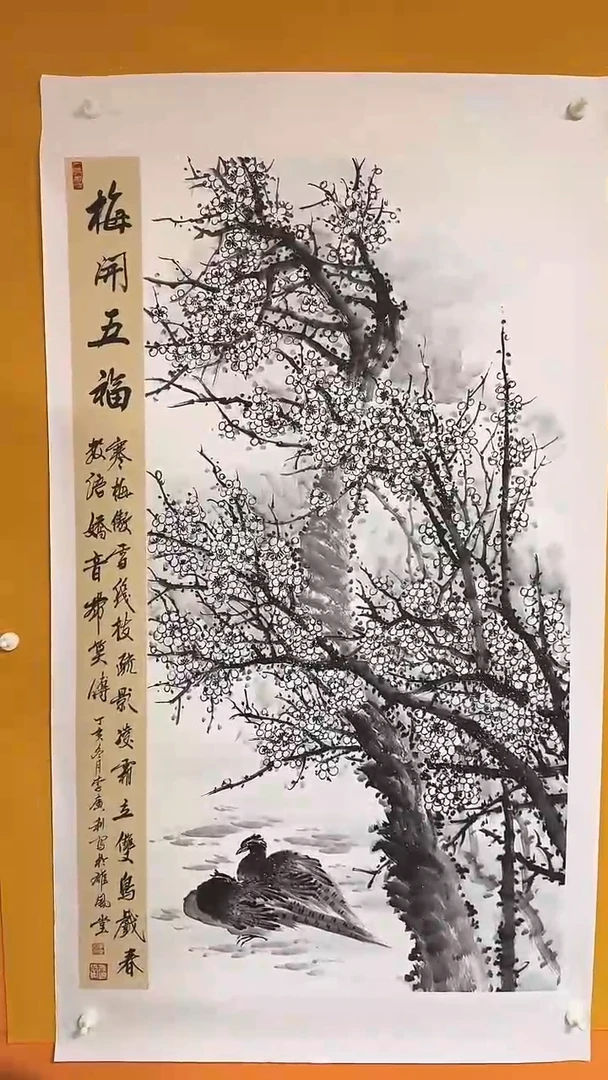 梅開五福
寒梅傲雪幾枝疏影凌霜立雙鳥戲春
數語嬌音帶笑傳
丁亥冬月李廣利寫於雄風堂